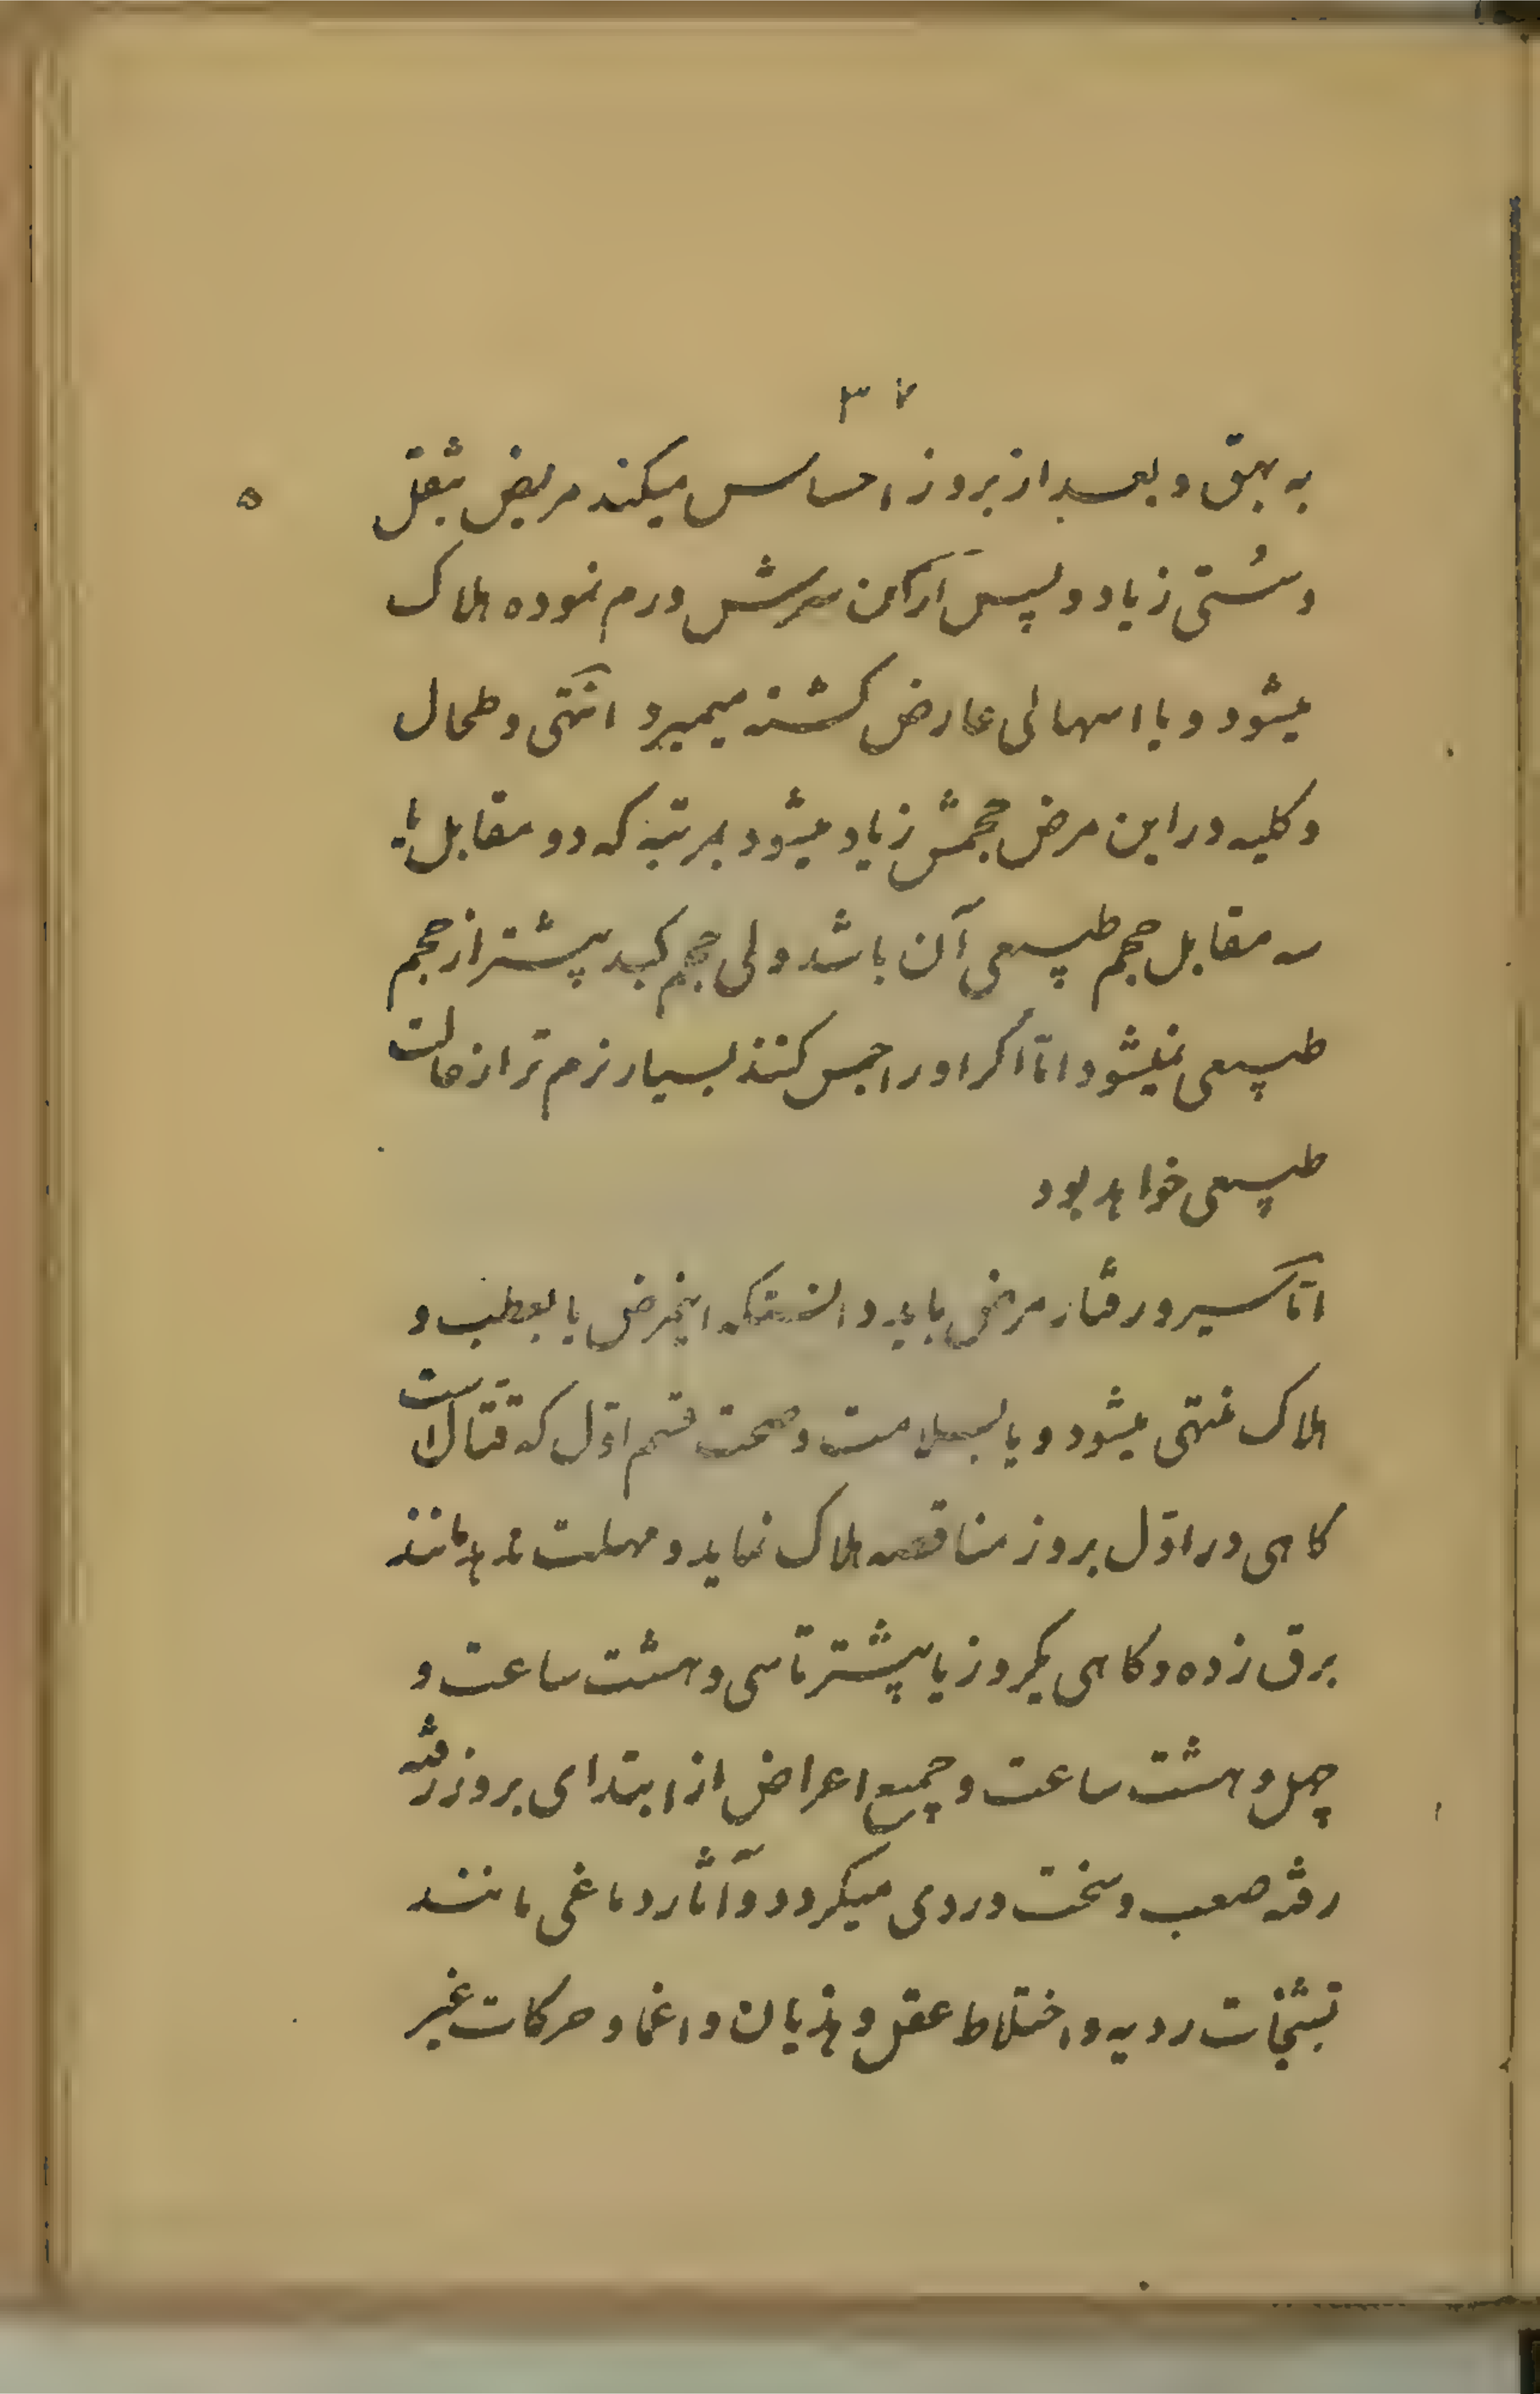 ۳۷
به بهق و بعد از بروز احساس میکند مریض بثقل
و سُستی زیاد و پس از آن سرش ورم نموده هلاک
میشود و با اسهالی عارض کشته میمیرد انتهی و طحال
و کلیه در این مرض حجمش زیاد میشود بمرتبه که دو مقابل یا
سه مقابل حجم طبیعی آن باشد ولی حجم کبد بیشتر از حجم
طبیعی نمیشود امّا اکر او را حبس کنند بسیار نرم تر از حالت
طبیعی خواهد بود
امّا سیر و رفتار مرض باید دانست که اینمرض یا بعطب و
هلاک منتهی میشود و یا بسلامت و صحت قسم اوّل که قتّال است
کاهی در اوّل بروز مناقصه هلاک نماید و مهلت ندهد مانند
برق زده و کاهی یکروز یا بیشتر تا سی و هشت ساعت و
چهل و هشت ساعت و جمیع اعراض از ابتدای بروز رفته
رفته صعب و سخت و ردی میکردد و آثار دماغی مانند
تشنجات ردیه و اختلاط عقل و هذیان و اغما و حرکات غیر